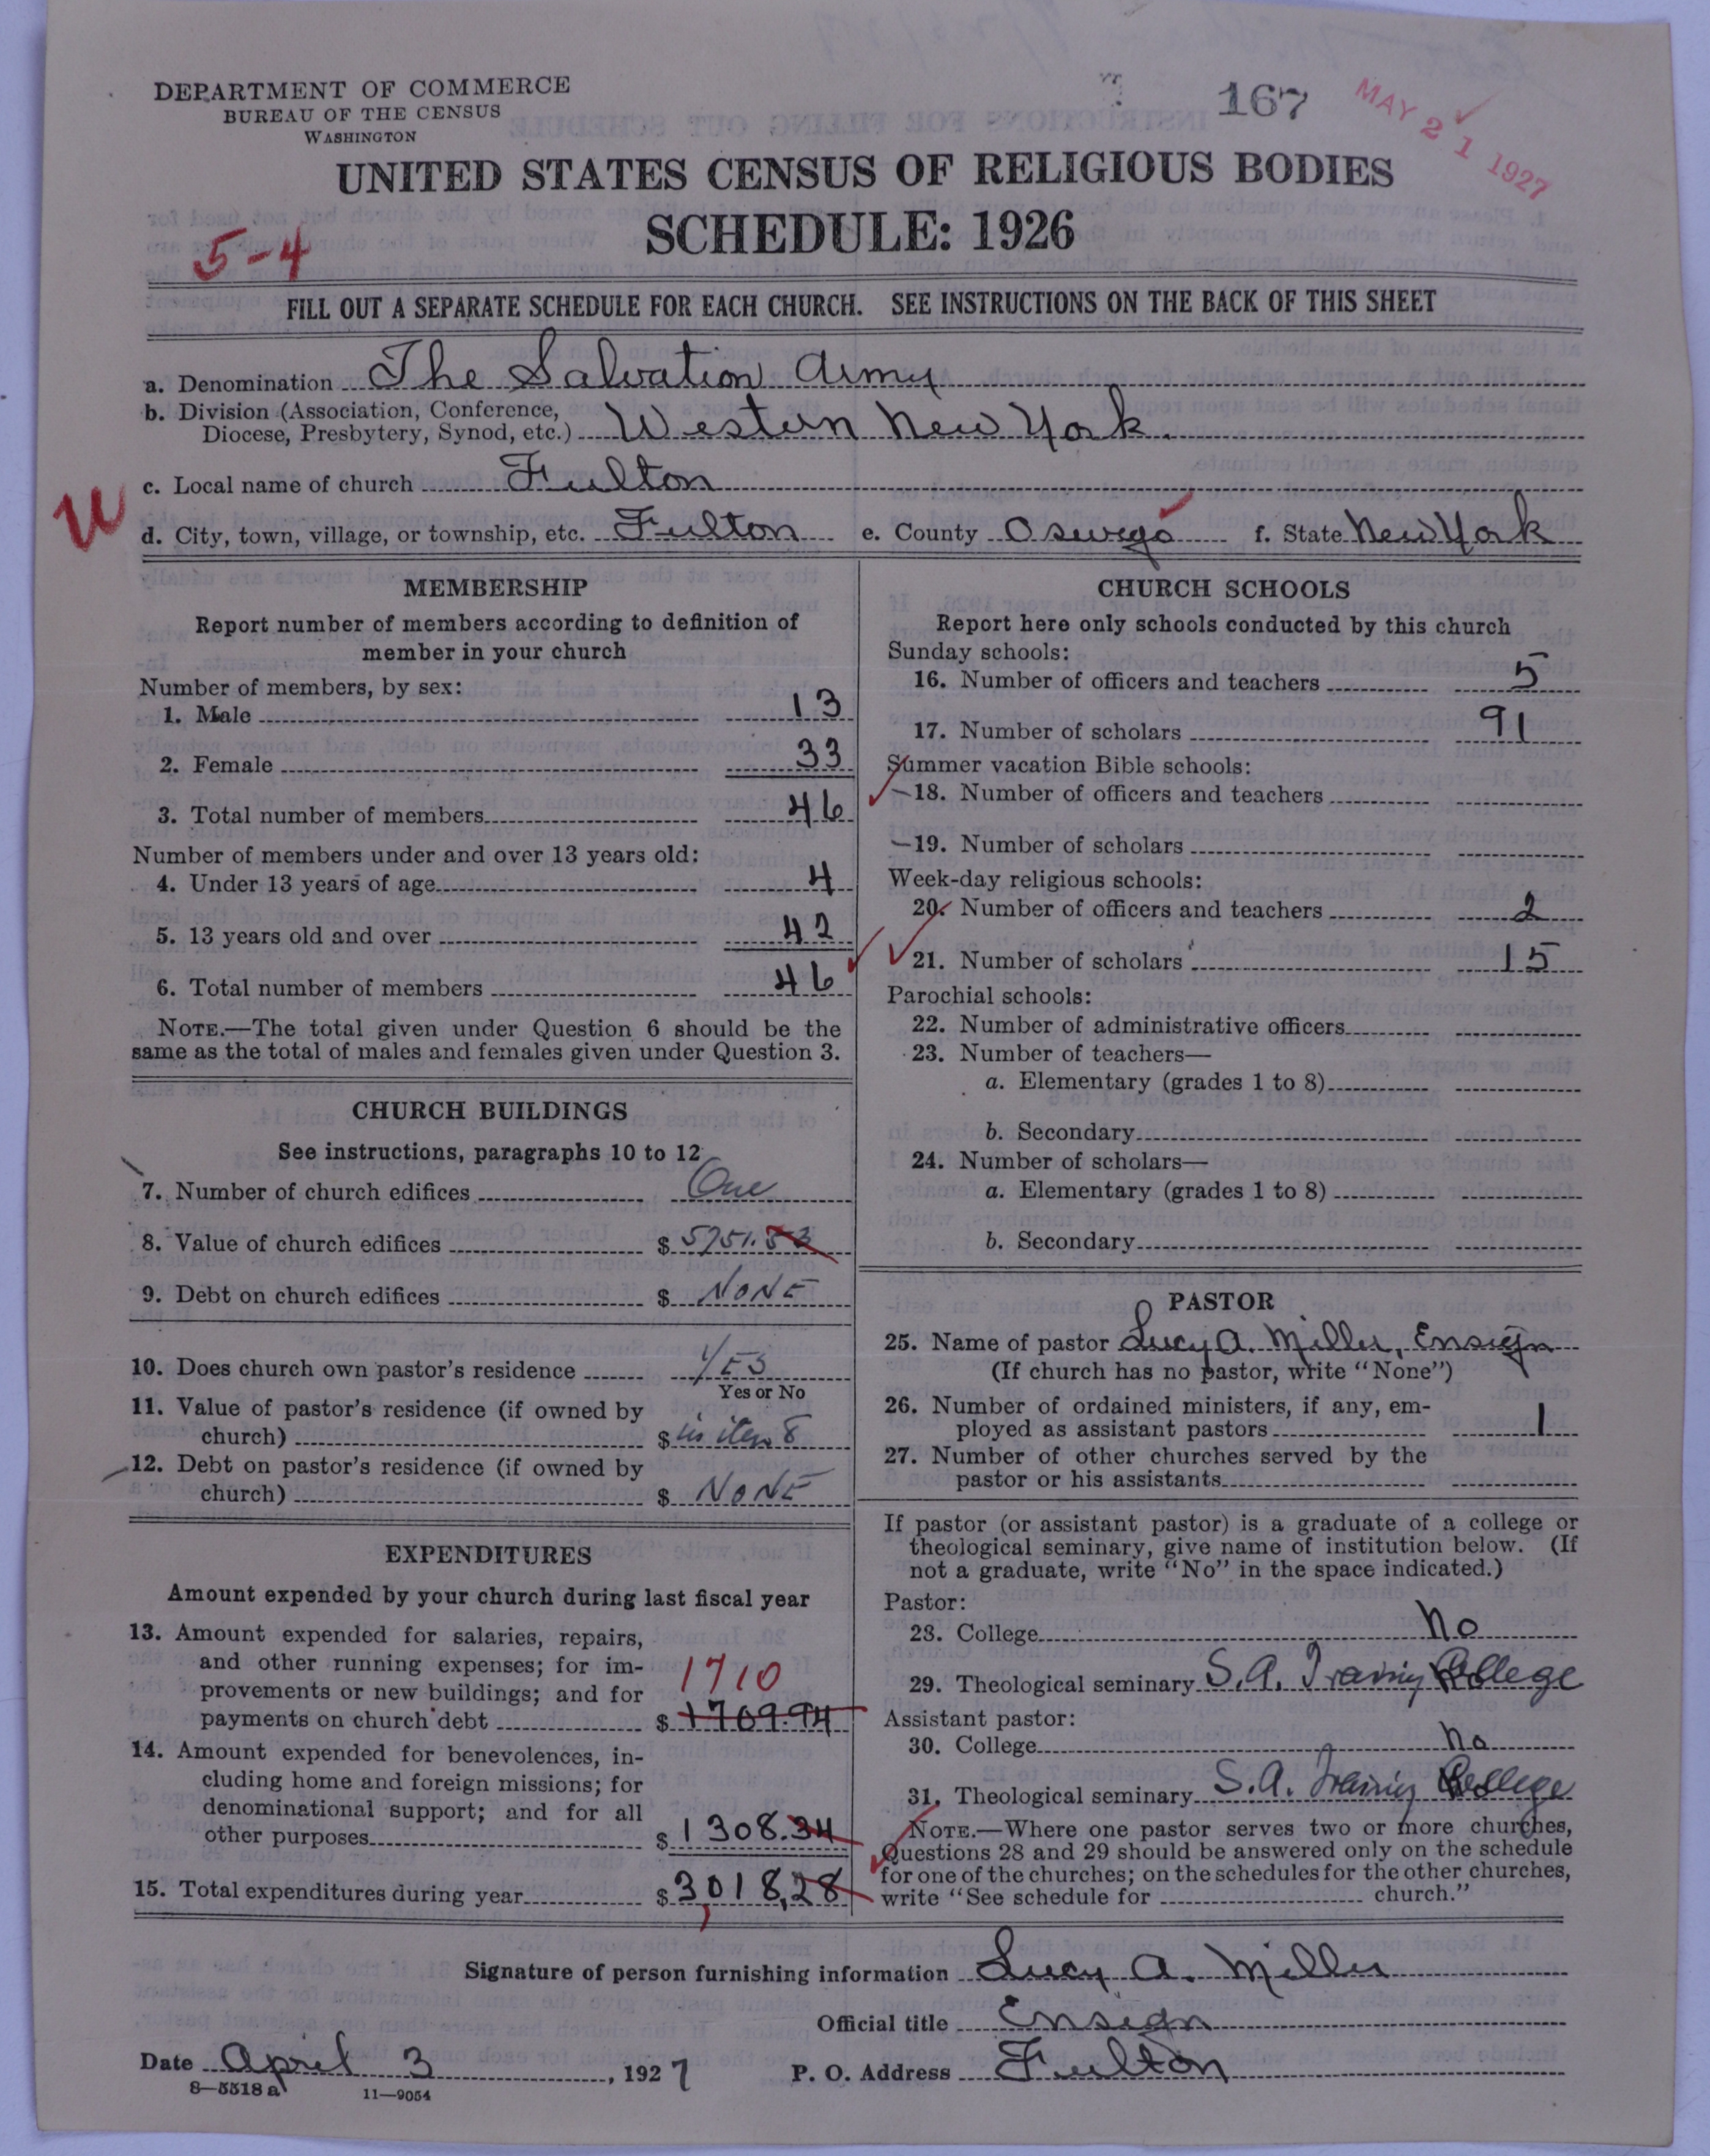 DEPARTMENT OF COMMERCE
BUREAU OF THE CENSUS
WASHINGTON
167
MAY 21 1927
UNITED STATES CENSUS OF RELIGIOUS BODIES
SCHEDULE: 1926
5-4
FILL OUT A SEPARATE SCHEDULE FOR EACH CHURCH. SEE INSTRUCTIONS ON THE BACK OF THIS SHEET
a. Denomination The Salvation Army
b. Division (Association, Conference,
Diocese, Presbytery, Synod, etc.) Western New York.
c. Local name of church Fulton
d. City, town, village, or township, etc. Fulton e. County Oswego f. State New York
MEMBERSHIP
Report number of members according to definition of
member in your church
Number of members, by sex:
1. Male 13
2. Female 33
3. Total number of members 46
Number of members under and over 13 years old:
4. Under 13 years of age 4
5. 13 years old and over 42
6. Total number of members 46
NOTE.—The total given under Question 6 should be the
same as the total of males and females given under Question 3.
CHURCH BUILDINGS
See instructions, paragraphs 10 to 12
7. Number of church edifices One
8. Value of church edifices $ 5751.53
9. Debt on church edifices $ NONE
10. Does church own pastor's residence YES
Yes or No
11. Value of pastor's residence (if owned by
church) $ in item 8
12. Debt on pastor's residence (if owned by
church) $ NONE
EXPENDITURES
Amount expended by your church during last fiscal year
13. Amount expended for salaries, repairs,
and other running expenses; for im-
provements or new buildings; and for 1710
payments on church debt $ 1709.94
14. Amount expended for benevolences, in-
cluding home and foreign missions; for
denominational support; and for all
other purposes $ 1308.34
15. Total expenditures during year $ 3018,28
CHURCH SCHOOLS
Report here only schools conducted by this church
Sunday schools:
16. Number of officers and teachers 5
17. Number of scholars 91
Summer vacation Bible schools:
18. Number of officers and teachers
19. Number of scholars
Week-day religious schools:
20. Number of officers and teachers 2
21. Number of scholars 15
Parochial schools:
22. Number of administrative officers
23. Number of teachers—
a. Elementary (grades 1 to 8)
b. Secondary
24. Number of scholars—
a. Elementary (grades 1 to 8)
b. Secondary
PASTOR
25. Name of pastor Lucy A. Miller, Ensign
(If church has no pastor, write "None")
26. Number of ordained ministers, if any, em-
ployed as assistant pastors 1
27. Number of other churches served by the
pastor or his assistants
If pastor (or assistant pastor) is a graduate of a college or
theological seminary, give name of institution below. (If
not a graduate, write "No" in the space indicated.)
Pastor:
28. College No
29. Theological seminary S.A. Training College
Assistant pastor:
30. College No
31. Theological seminary S.A. Training College
NOTE.—Where one pastor serves two or more churches,
Questions 28 and 29 should be answered only on the schedule
for one of the churches; on the schedules for the other churches,
write "See schedule for church."
Signature of person furnishing information Lucy A. Miller
Official title Ensign
Date April 3, 1927 P. O. Address Fulton
8—5518 a 11—9054